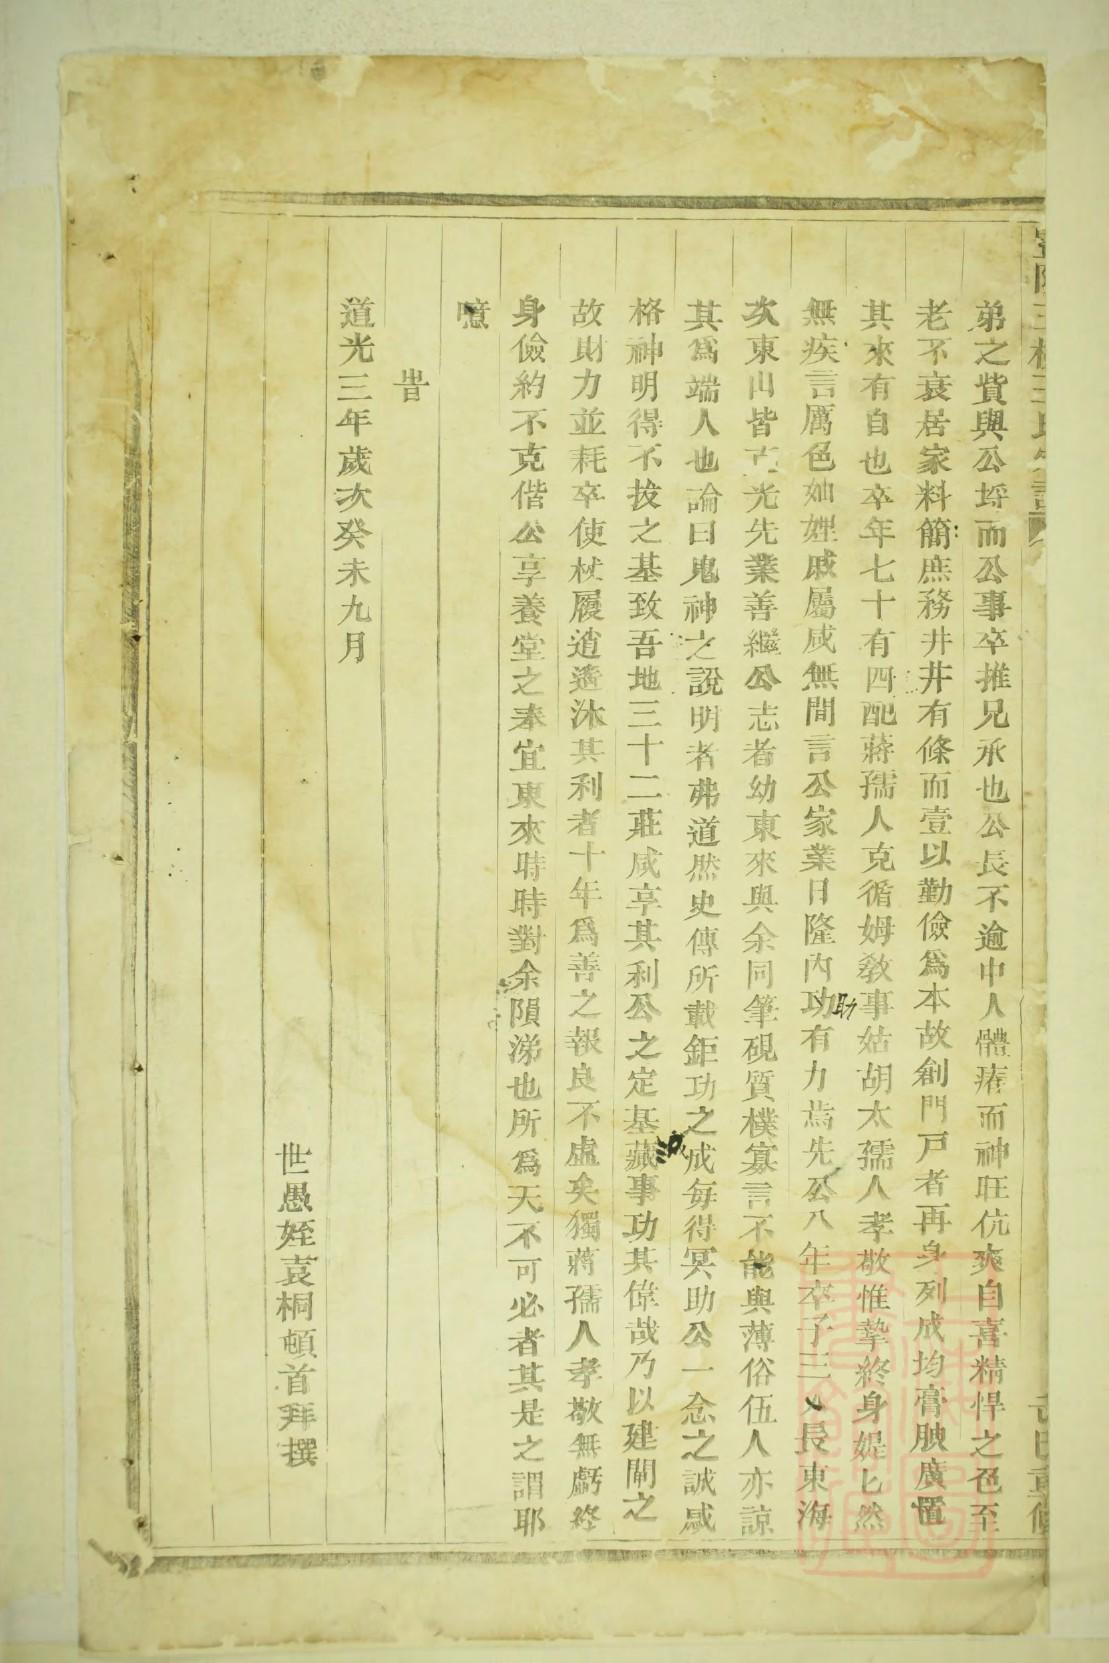 弟之貲與公埓而公事卒推兄承也公長不逾中人體瘠而神旺伉爽自喜精悍之色至
老不衰居家料簡庶務井井有條而壹以勤儉爲本故創門戸者再身列成均膏腴廣置
其來有自也卒年七十有四配蔣孺人克循姆敎事姑胡太孺人孝敬惟摯終身媞匕然
無疾言厲色妯娌戚屬咸無間言公家業日隆內功助有力焉先公八年卒子三人長東海
次東山皆克光先業善繼公志者幼東來與余同筆硯質樸寡言不能與薄俗伍人亦諒
其爲端人也論曰鬼神之說明者弗道然史傳所載鉅功之成每得冥助公一念之誠感
格神明得不拔之基致吾地三十二莊咸享其利公之定基藏事功其偉哉乃以建閘之
故財力並耗卒使杖履逍遙沐其利者十年爲善之報良不虛矣獨蔣孺人孝敬無虧終
身儉約不克偕公享養堂之奉宜東來時時對余隕涕也所爲天不可必者其是之謂耶
噫
旹
道光三年歲次癸未九月
世愚姪袁桐頓首拜撰